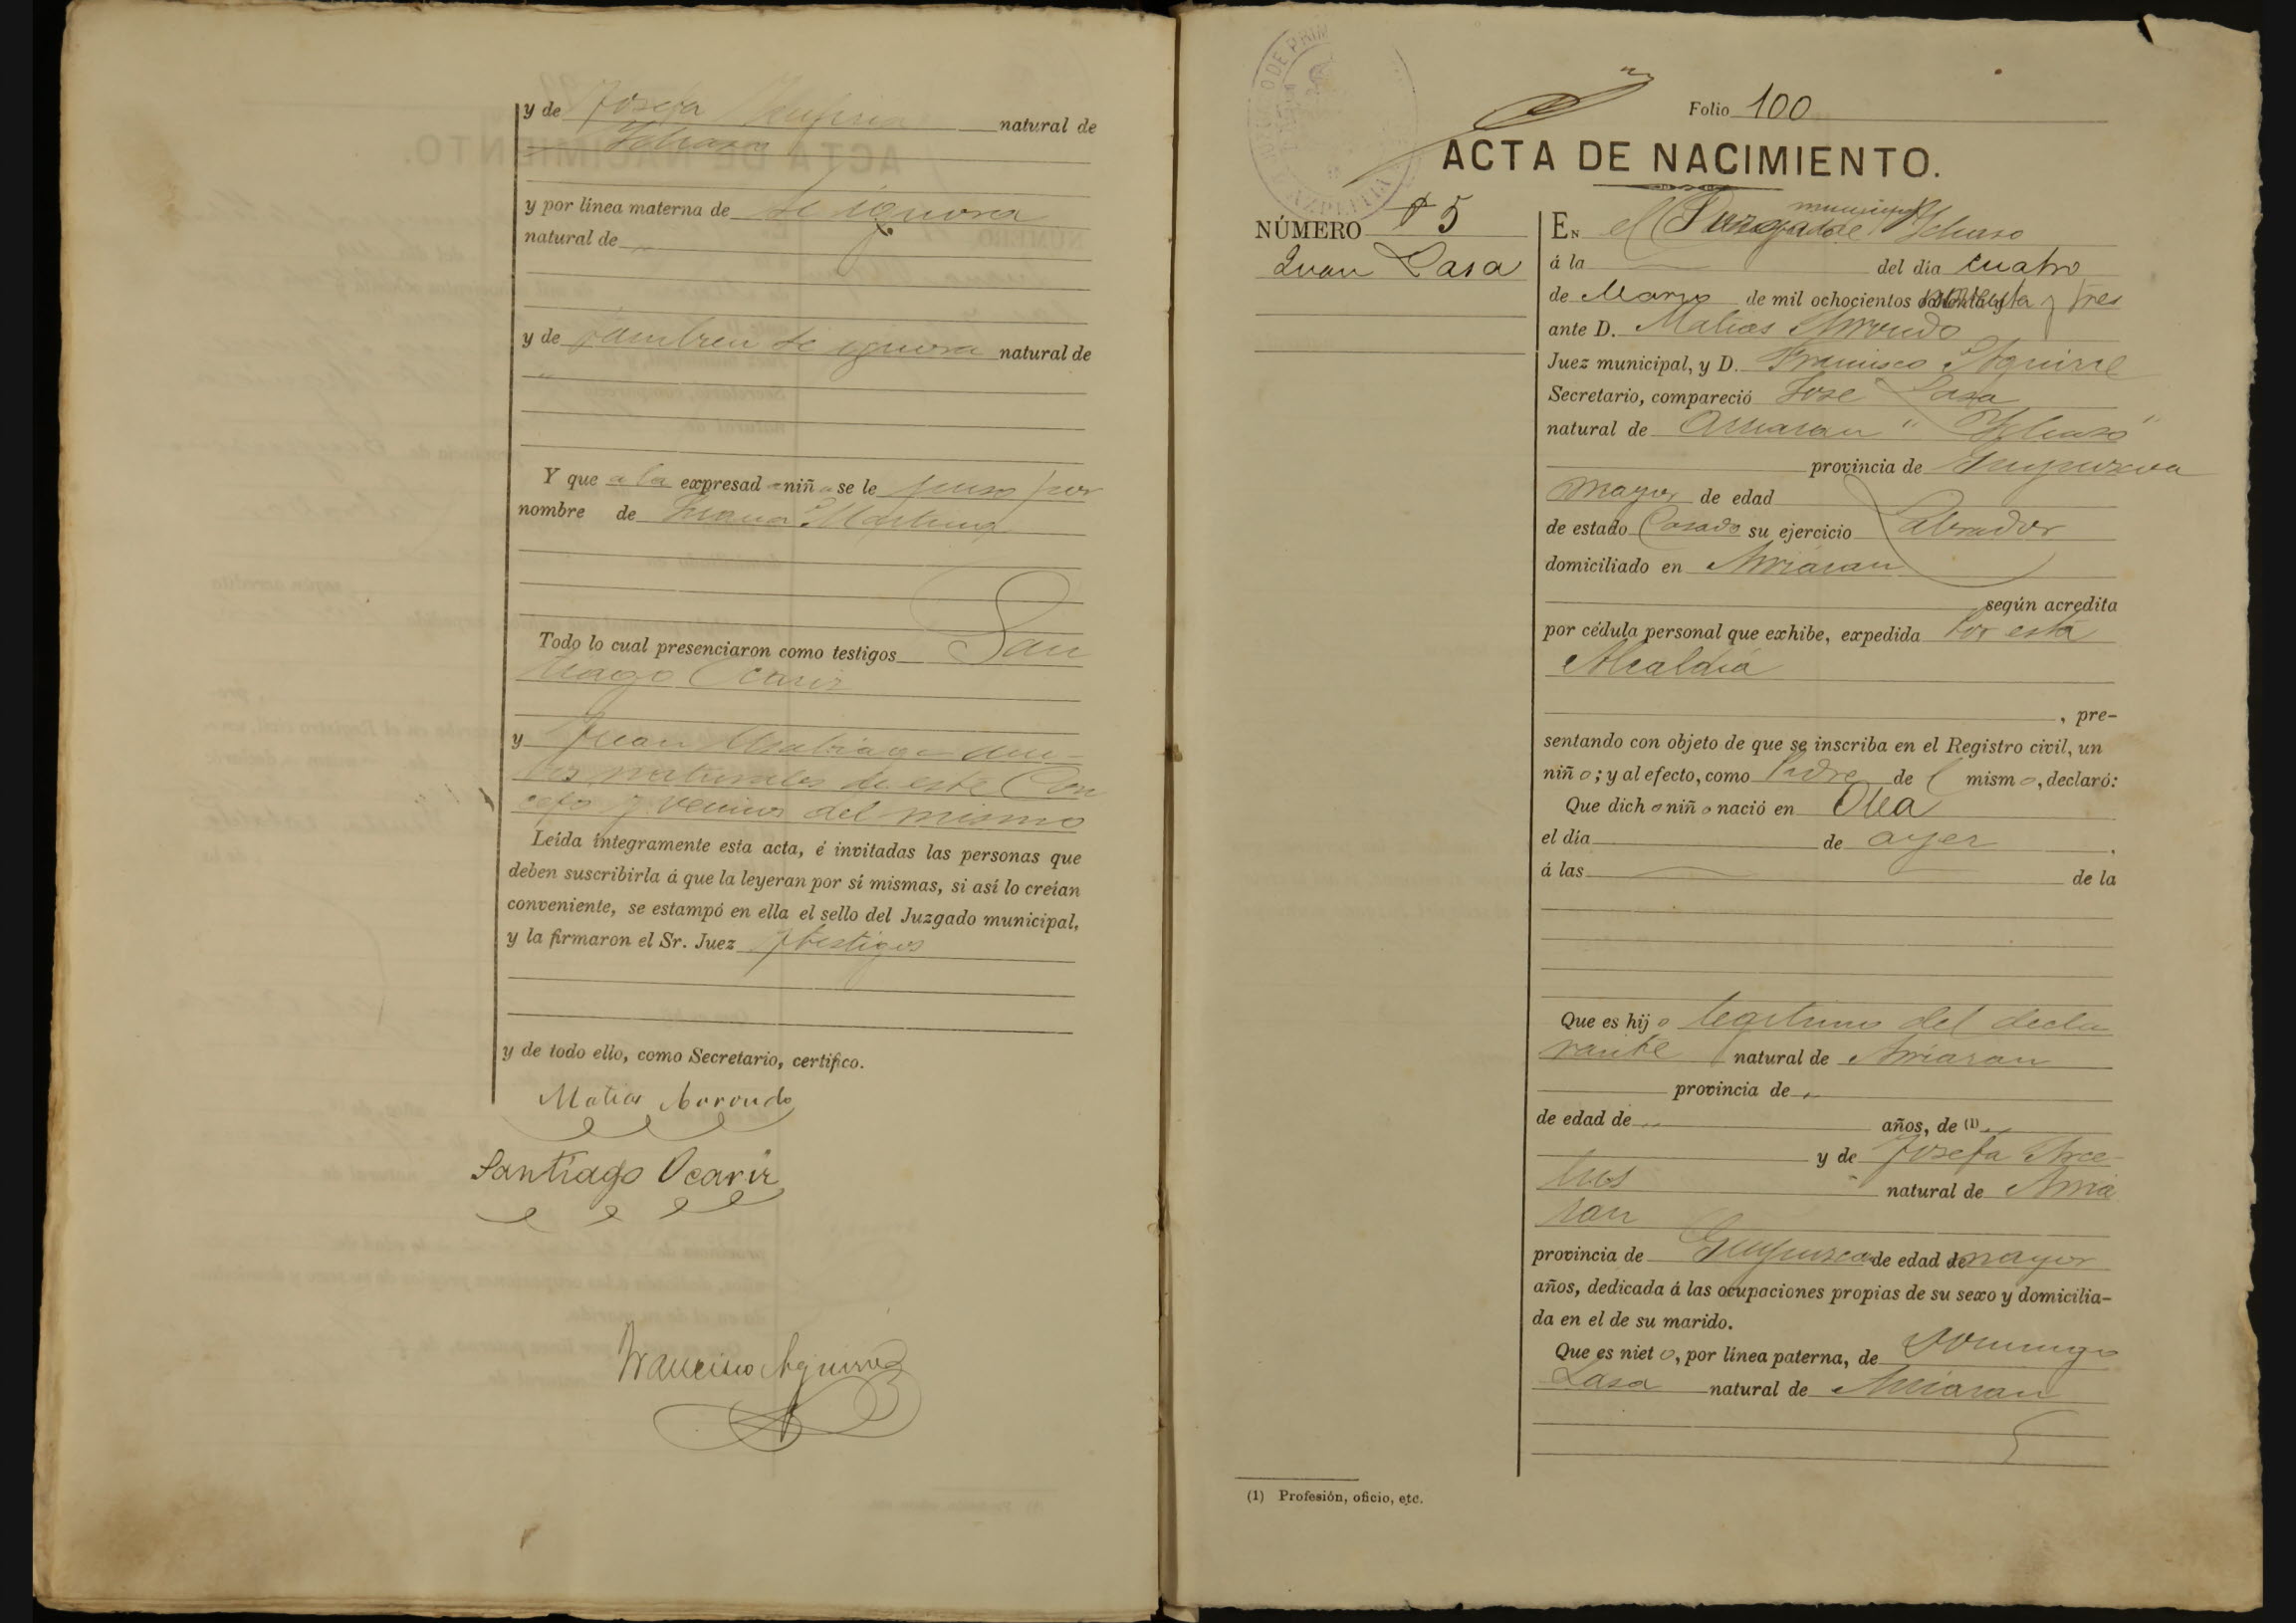 y de Josefa natural de
y por línea materna de Se ignora
natural de "
y de tambien se ignora natural de
"
Y que a la expresad a niñ a se le puso por
nombre de Juana Martina
Todo lo cual presenciaron como testigos San
tiago Ocariz
y Juan am-
bos naturales de este Con
cejo y vecinos del mismo
Leída íntegramente esta acta, é invitadas las personas que
deben suscribirla á que la leyeran por sí mismas, si así lo creían
conveniente, se estampó en ella el sello del Juzgado municipal,
y la firmaron el Sr. Juez y testigos
y de todo ello, como Secretario, certifico.
Matias Arrondo
Santiago Ocariz
Francisco Aguirre
Folio 100
ACTA DE NACIMIENTO.
NÚMERO 5
Juan Lasa
En el Juzgado municipal de Ichaso
á la del día cuatro
de Marzo de mil ochocientos noventa y tres
ante D. Matias Arrondo
Juez municipal, y D. Francisco Aguirre
Secretario, compareció Jose Lasa
natural de Arriaran " Ychaso "
provincia de Guipuzcoa
mayor de edad
de estado Casado su ejercicio Labrador
domiciliado en Arriaran
según acredita
por cédula personal que exhibe, expedida Por esta
Alcaldia
, pre-
sentando con objeto de que se inscriba en el Registro civil, un
niñ o; y al efecto, como Padre de l mism o, declaró:
Que dich o niñ o nació en Olea
el día de ayer .
á las de la
Que es hij o legitimo del decla
rante natural de Arriaran
provincia de "
de edad de " años, de (1) "
y de Josefa Arce
lus natural de Arria
ran
provincia de Guipuzcoa de edad de mayor
años, dedicada á las ocupaciones propias de su sexo y domicilia-
da en el de su marido.
Que es niet o, por línea paterna, de Domingo
Lasa natural de Arriaran
(1) Profesión, oficio, etc.